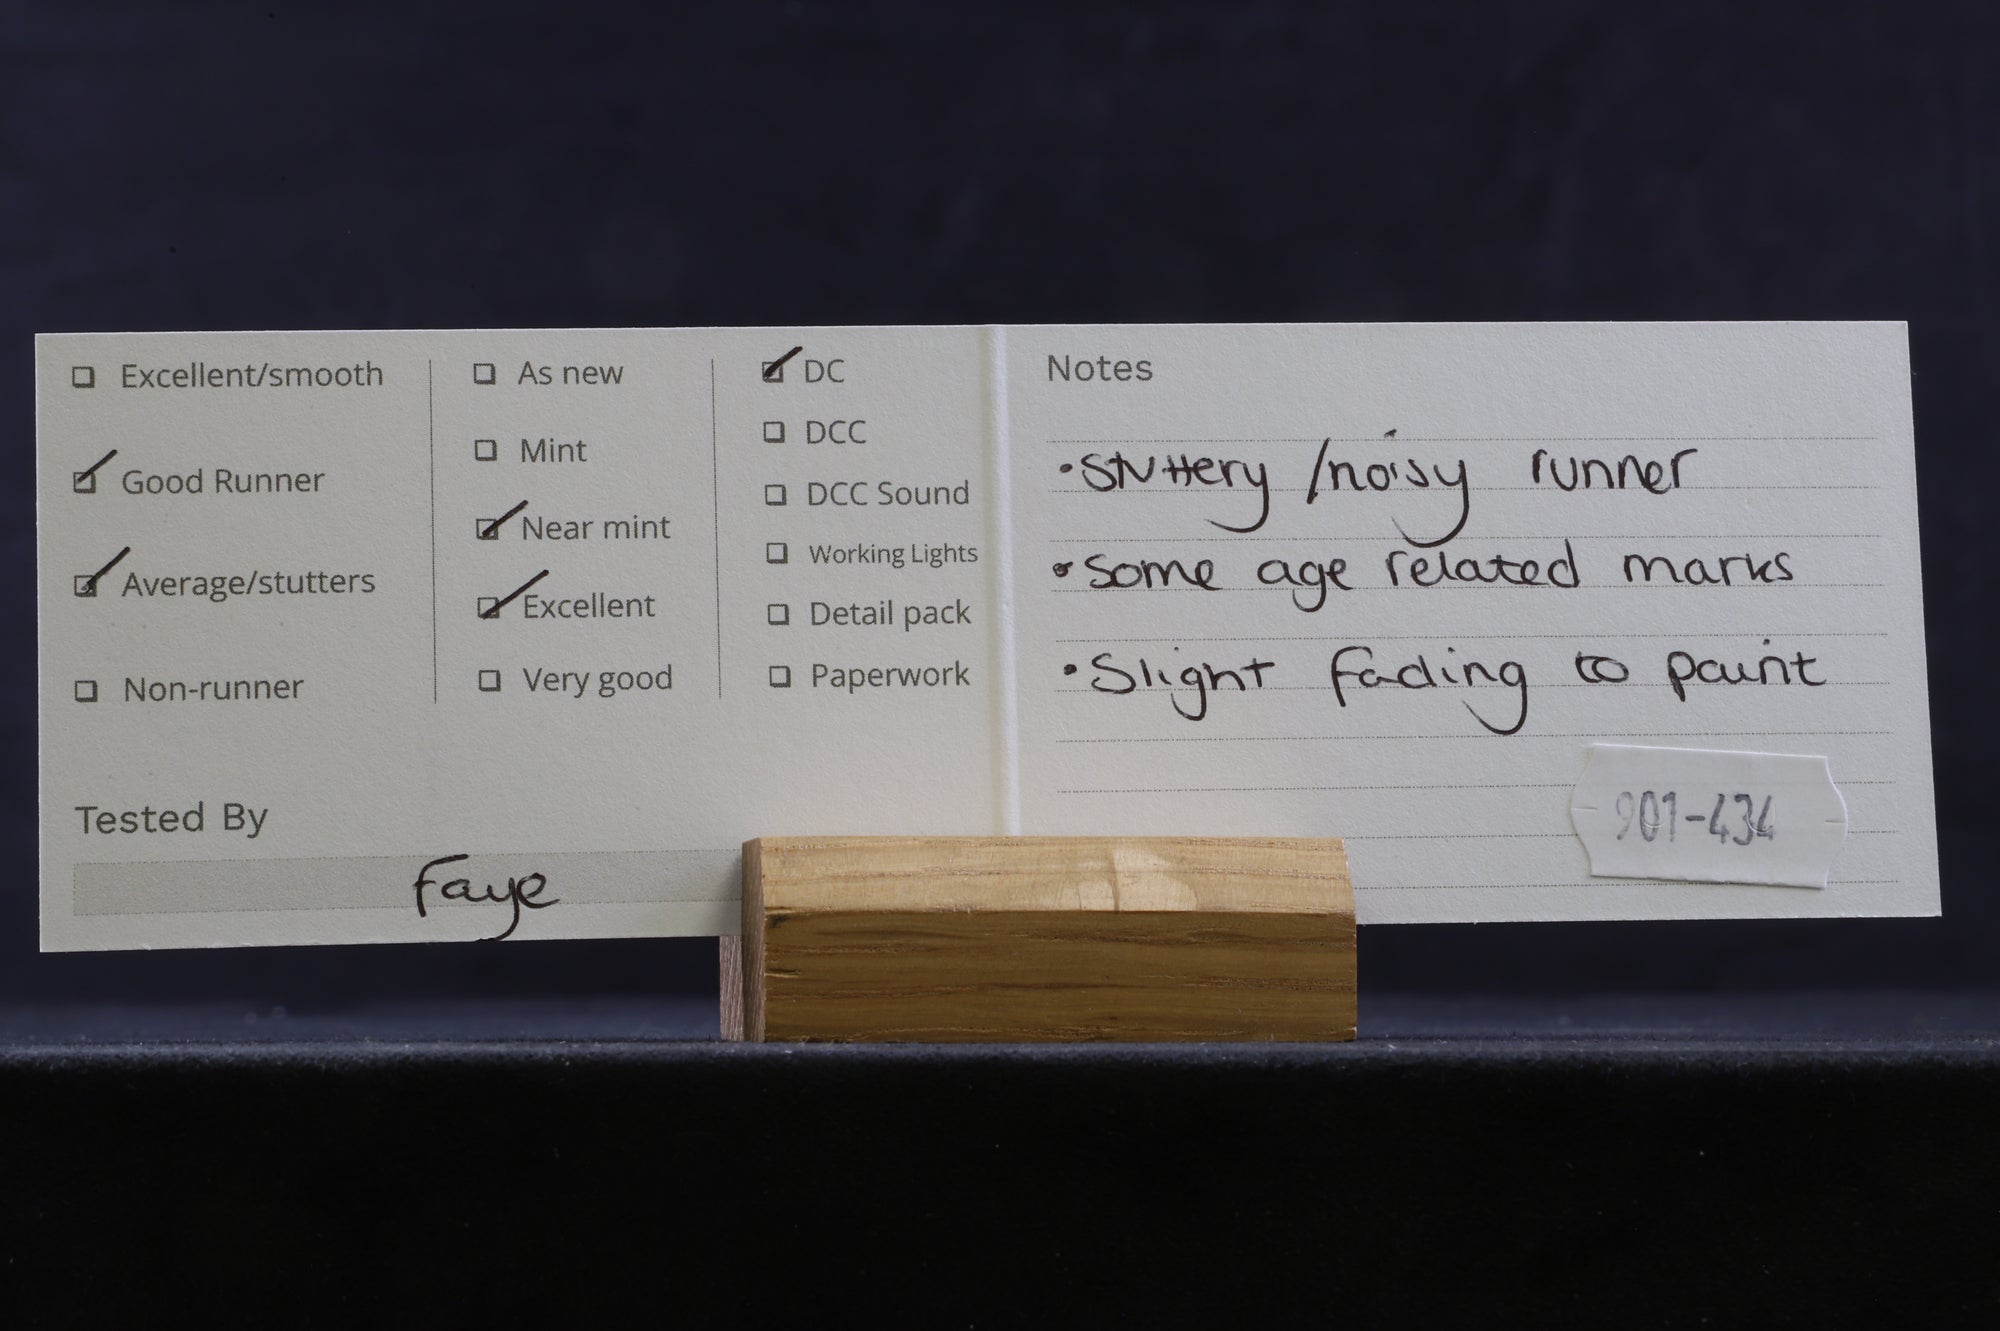 Excellent/smooth
Good Runner
Average/stutters
Non-runner
As new
Mint
Near mint
Excellent
Very good
DC
DCC
DCC Sound
Working Lights
Detail pack
Paperwork
Tested By
Faye
Notes
•Stuttery /noisy runner
•Some age related marks
•Slight fading to paint
901-434